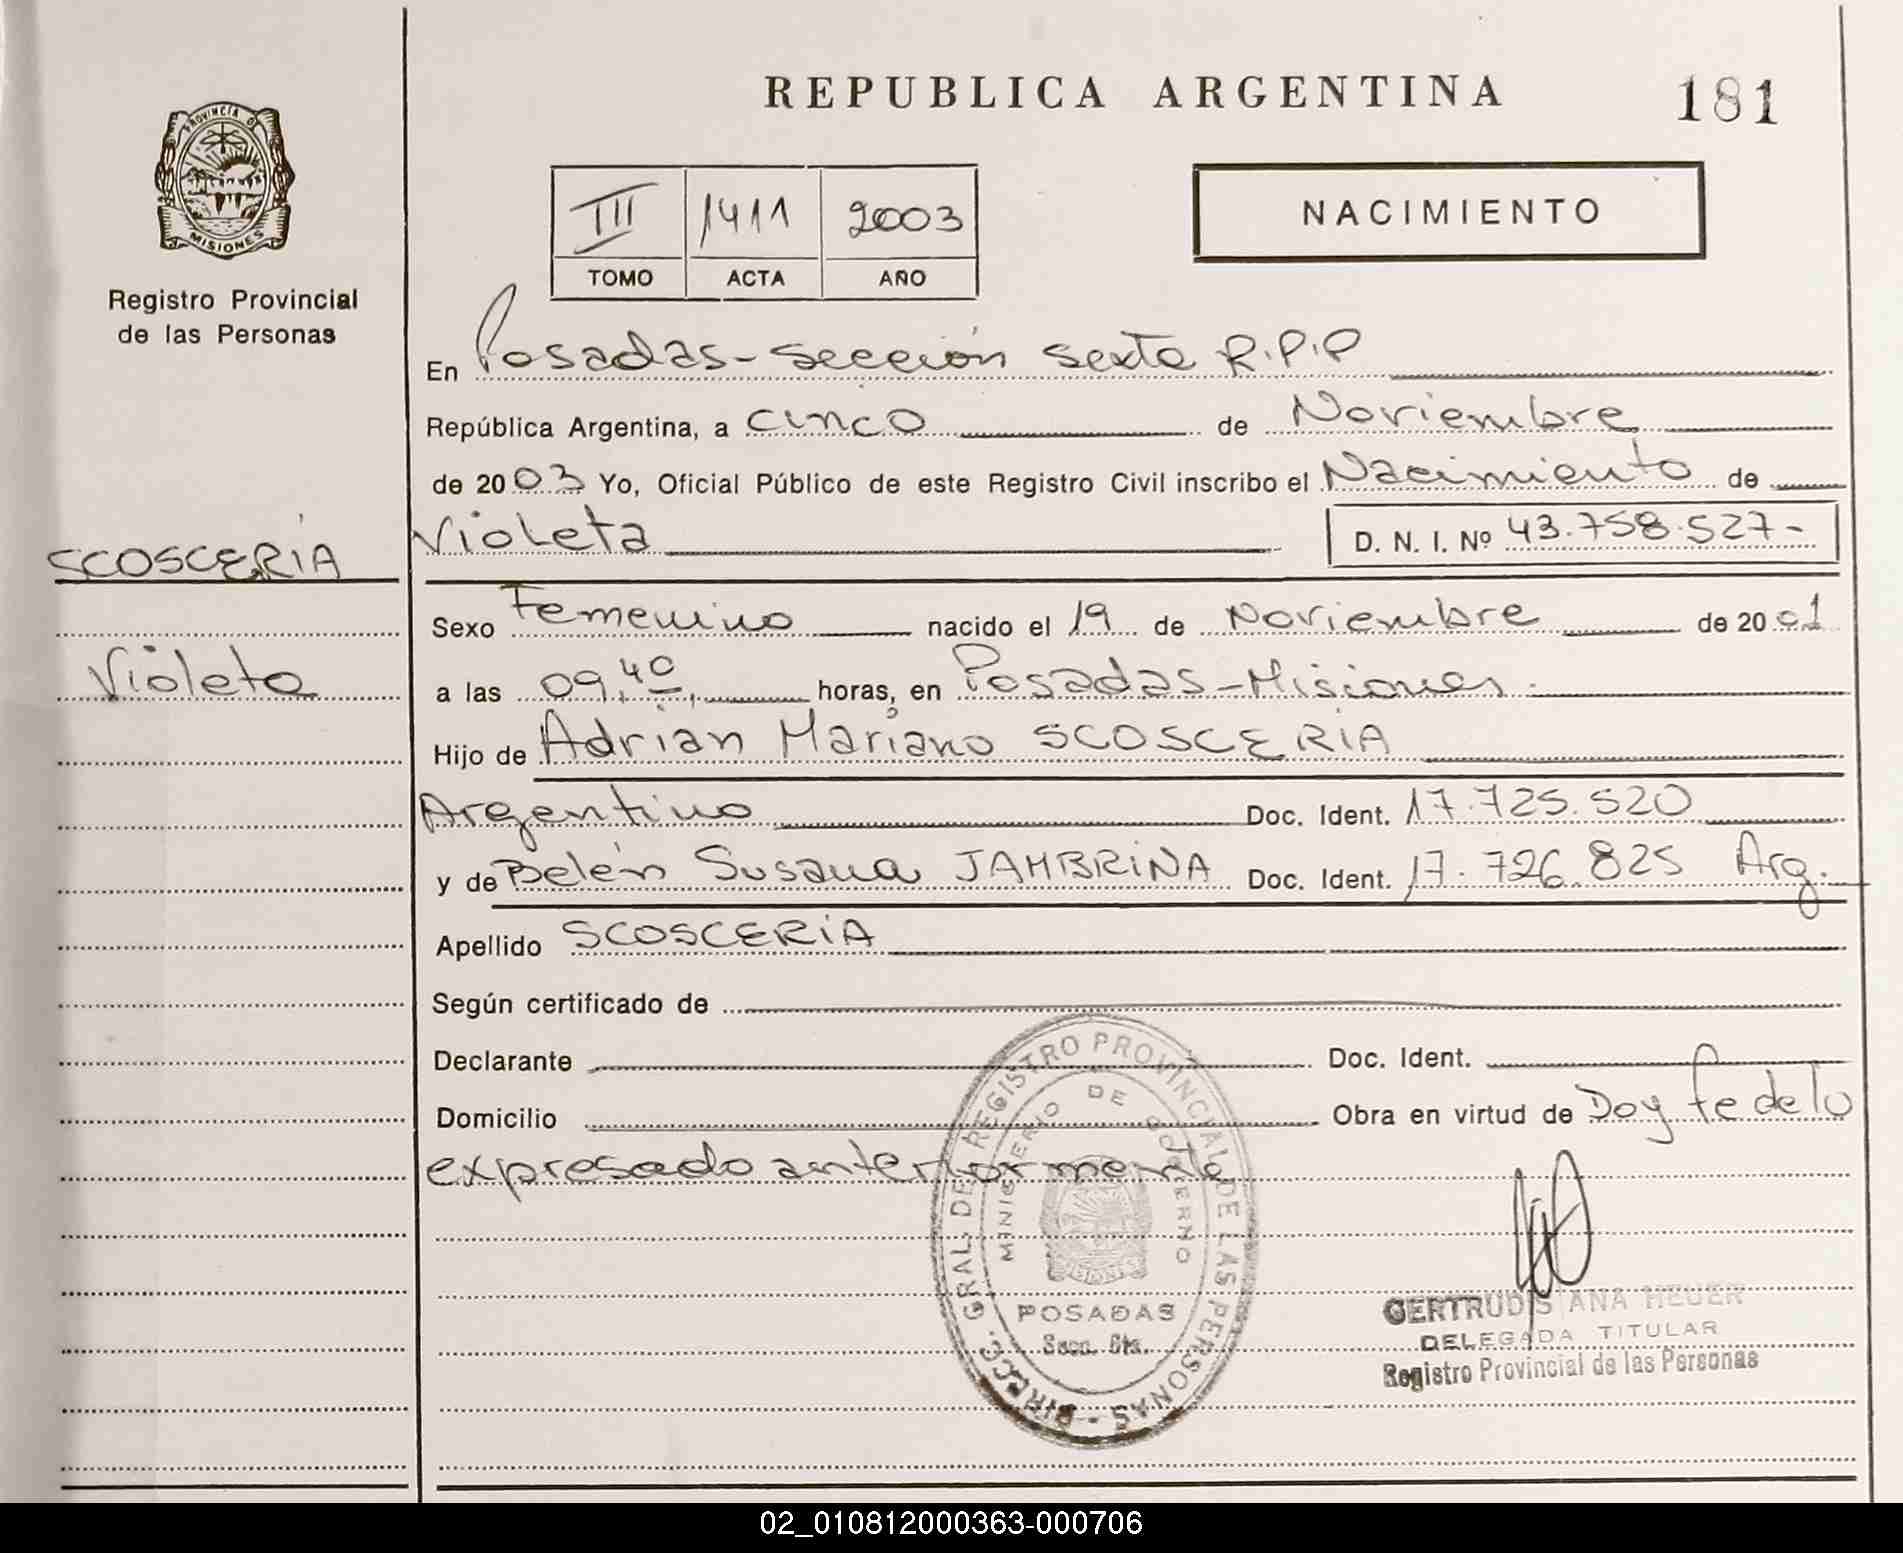 REPUBLICA ARGENTINA
181
PROVINCIA D
MISIONES
Registro Provincial
de las Personas
III 1411 2003
TOMO ACTA AÑO
NACIMIENTO
En Posadas-Sección Sexta R.P.P
República Argentina, a cinco de Noviembre
de 2003 Yo, Oficial Público de este Registro Civil inscribo el Nacimiento de
SCOSCERIA
Violeta
Violeta D. N. I. Nº 43.758.527-
Sexo Femenino nacido el 19 de Noviembre de 2001
a las 09,40, horas, en Posadas-Misiones.
Hijo de Adrian Mariano SCOSCERIA
Argentino Doc. Ident. 17.725.520
y de Belén Susana JAMBRINA Doc. Ident. 17.726.825 Arg.
Apellido SCOSCERIA
Según certificado de
Declarante Doc. Ident.
Domicilio Obra en virtud de Doy fe de lo
expresado anteriormente
DIRECC. GRAL. DEL REGISTRO PROVINCIAL DE LAS PERSONAS -
MINISTERIO DE GOBIERNO
POSADAS
Secc. 6ta.
GERTRUDIS ANA HEUER
DELEGADA TITULAR
Registro Provincial de las Personas
02_010812000363-000706